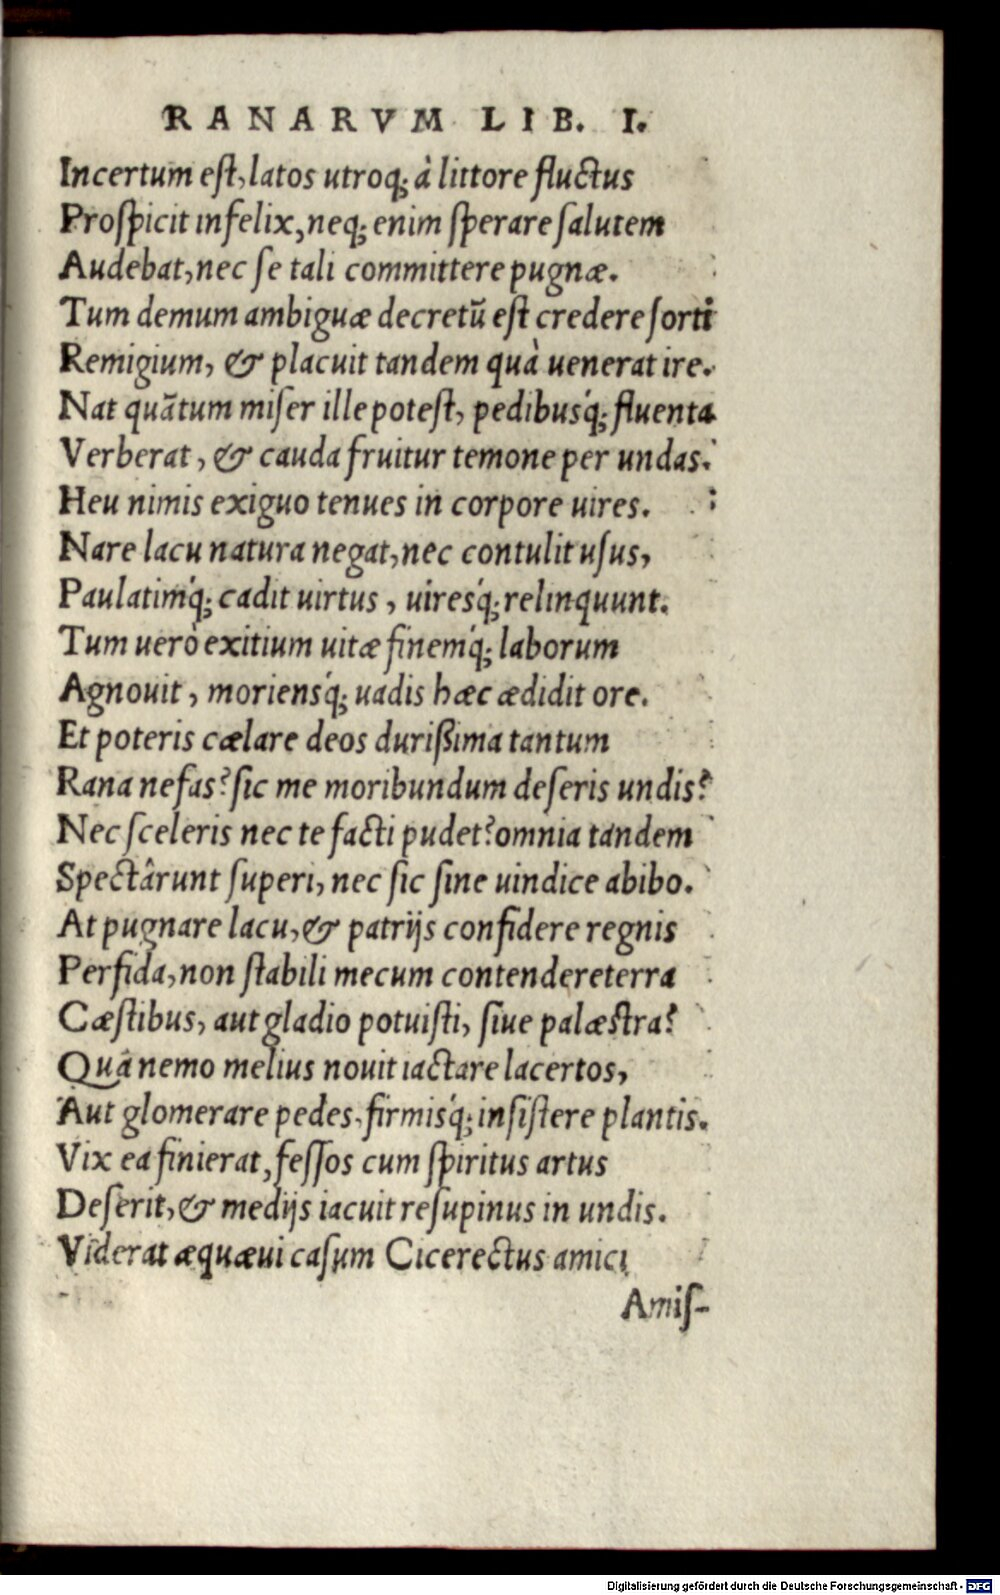 RANARVM LIB. I.
Incertum est, latos utroq; à littore fluctus
Prospicit infelix, neq; enim sperare salutem
Audebat, nec se tali committere pugnæ.
Tum demum ambiguæ decretũ est credere sorti
Remigium, & placuit tandem quà uenerat ire.
Nat quãtum miser ille potest, pedibusq́; fluenta
Verberat, & cauda fruitur temone per undas.
Heu nimis exiguo tenues in corpore uires.
Nare lacu natura negat, nec contulit usus,
Paulatimq́; cadit uirtus, uiresq́; relinquunt.
Tum uerò exitium uitæ finemq́; laborum
Agnouit, moriensq́; uadis hæc ædidit ore.
Et poteris cælare deos durißima tantum
Rana nefas? sic me moribundum deseris undis?
Nec sceleris nec te facti pudet? omnia tandem
Spectârunt superi, nec sic sine uindice abibo.
At pugnare lacu, & patrijs confidere regnis
Perfida, non stabili mecum contendere terra
Cæstibus, aut gladio potuisti, siue palæstra?
Quã nemo melius nouit iactare lacertos,
Aut glomerare pedes, firmisq́; insistere plantis.
Vix ea finierat, fessos cum spiritus artus
Deserit, & medijs iacuit resupinus in undis.
Viderat æquæui casum Cicerectus amici
Amis-
Digitalisierung gefördert durch die Deutsche Forschungsgemeinschaft - DFG